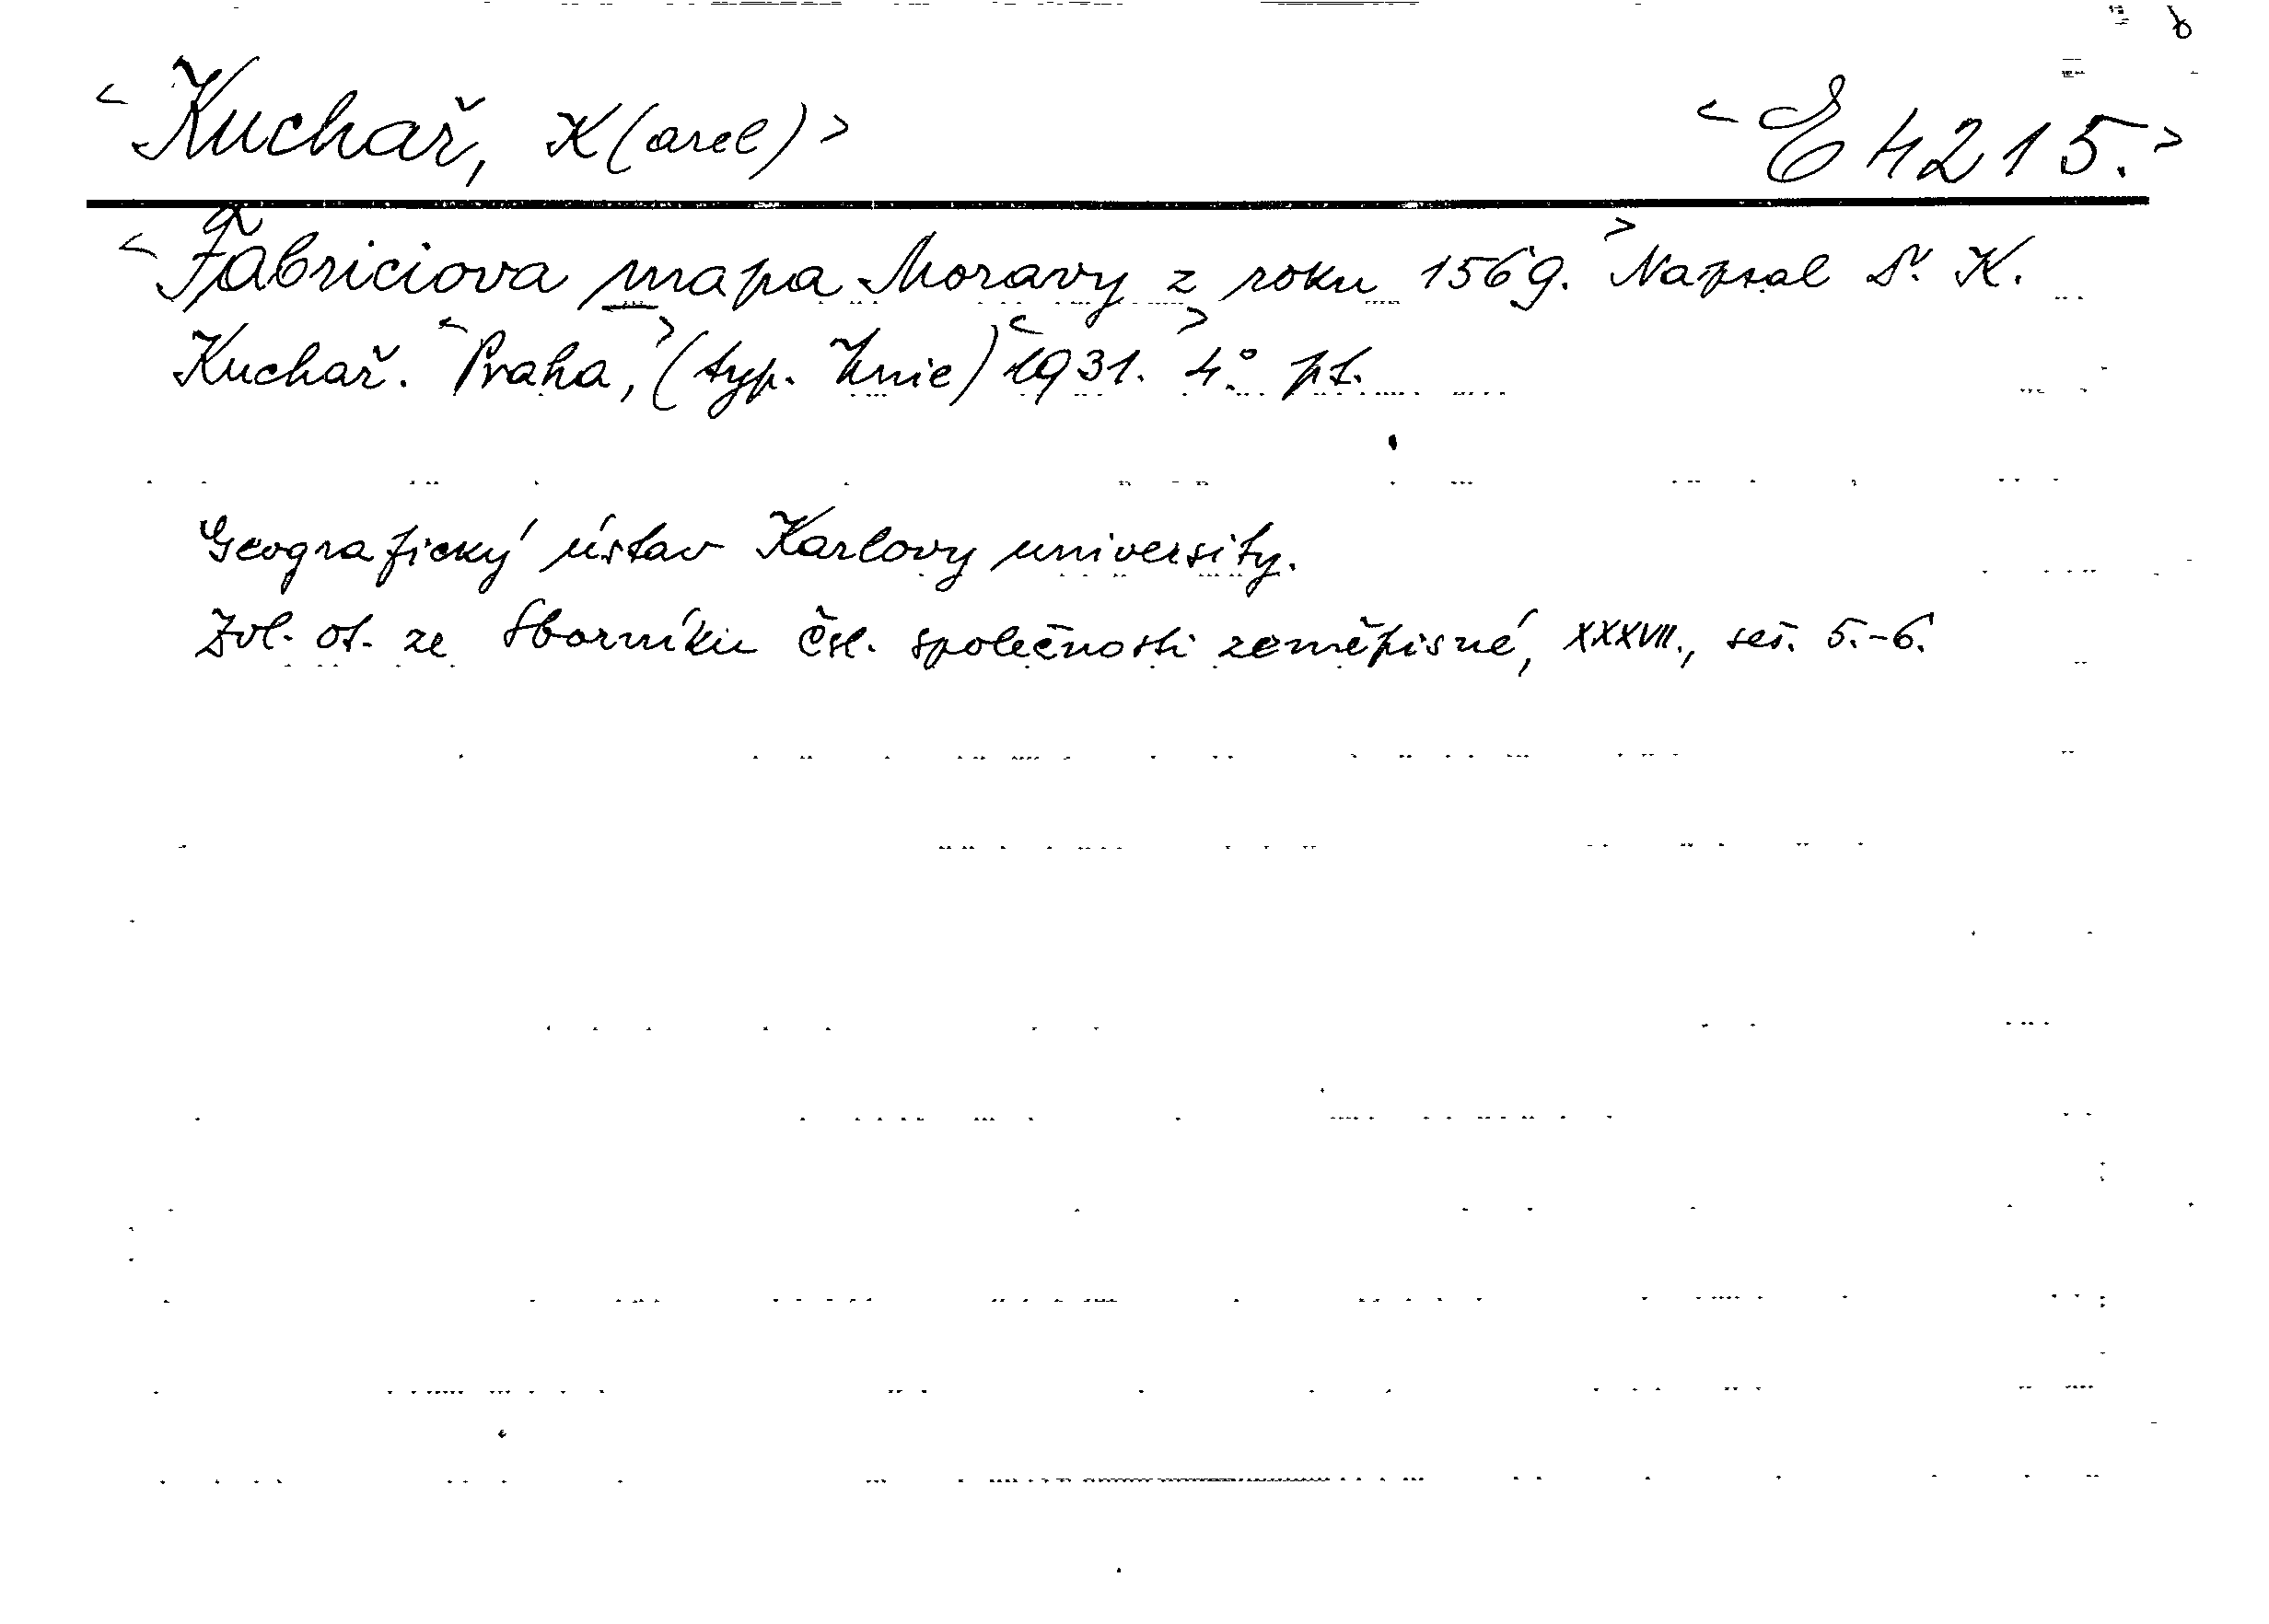 <Kuchař, K(arel)> <E 4215.>
<Fabriciova mapa Moravy z roku 1569.> Napsal Dr. K.
Kuchař. <Praha,> (typ. Unie) <1931.> 4.°
Geografický ústav Karlovy university.
Zvl. ot. ze Sborníku čsl. společnosti zeměpisné, XXXVII., seš. 5.-6.